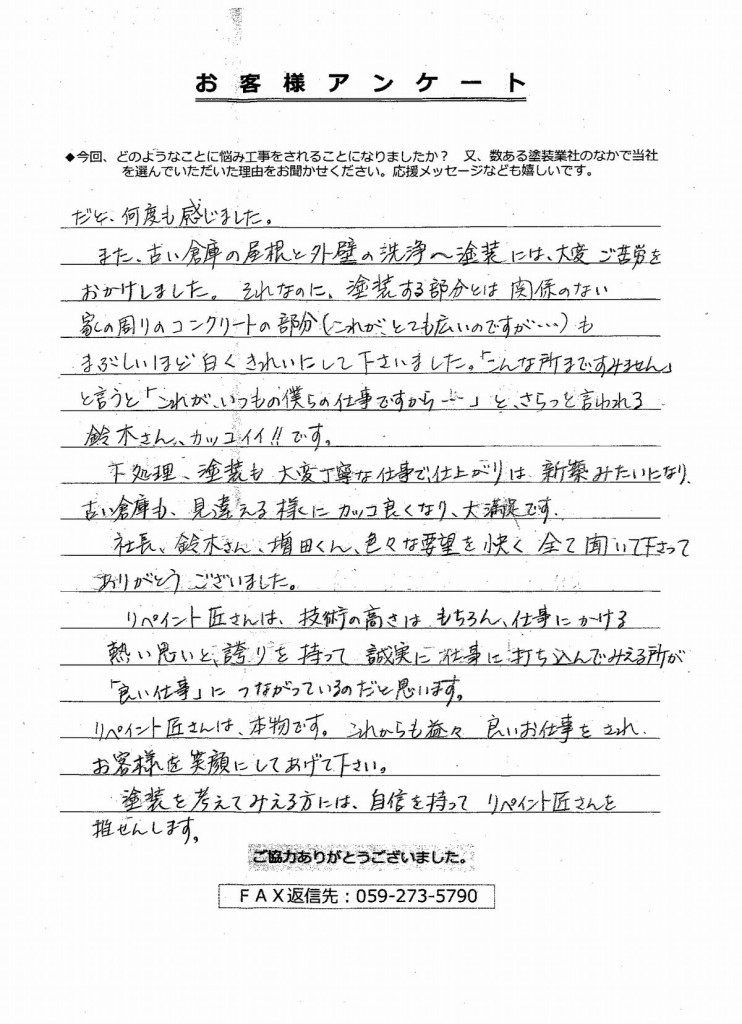 お客様アンケート
◆今回、どのようなことに悩み工事をされることになりましたか？　又、数ある塗装業社のなかで当社
を選んでいただいた理由をお聞かせください。応援メッセージなども嬉しいです。
だと、何度も感じました。
また、古い倉庫の屋根と外壁の洗浄〜塗装には、大変ご苦労を
おかけしました。それなのに、塗装する部分とは関係のない
家の周りのコンクリートの部分(これが、とても広いのですが…)も
まぶしいほど白くきれいにして下さいました。「こんな所まですみません」
と言うと「これが、いつもの僕らの仕事ですから…」と、さらっと言われる
鈴木さん、カッコイイ!!です。
下処理、塗装も大変丁寧な仕事で、仕上がりは新築みたいになり、
古い倉庫も、見違える様にカッコ良くなり、大満足です。
社長、鈴木さん、増田くん、色々な要望を快く全て聞いて下さって
ありがとうございました。
リペイント匠さんは、技術の高さはもちろん、仕事にかける
熱い思いと、誇りを持って誠実に仕事に打ち込んでみえる所が
「良い仕事」につながっているのだと思います。
リペイント匠さんは、本物です。これからも益々良いお仕事をされ、
お客様を笑顔にしてあげて下さい。
塗装を考えてみえる方には、自信を持ってリペイント匠さんを
推せんします。
ご協力ありがとうございました。
ＦＡＸ返信先：059-273-5790